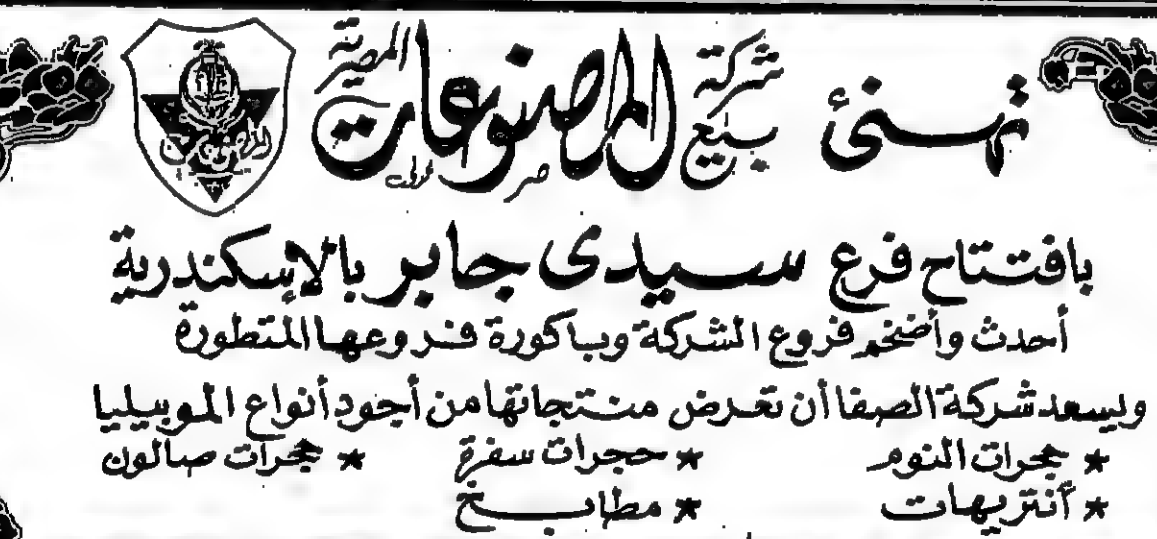 تهنئ شركة بيع المصنوعات المصرية
بافتتاح فرع سيدى جابر بالإسكندرية
أحدث وأضخم فروع الشركة وباكورة فروعها المتطورة
وليسعد شركة الصفا أن تعرض منتجاتها من أجود أنواع الموبيليا
* حجرات النوم * حجرات سفرة * حجرات صالون
* أنتريهات * مطابخ